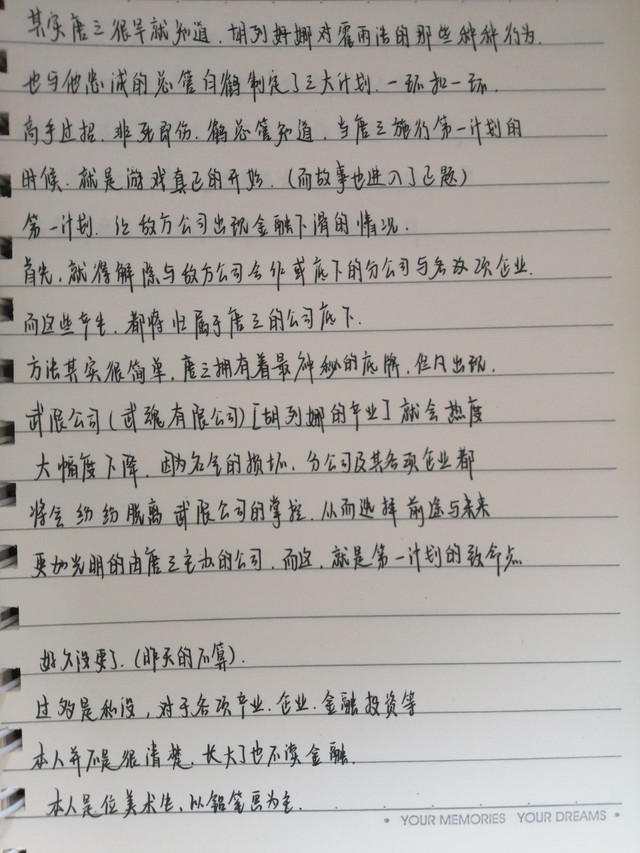 其实唐三很早就知道，胡列娜对霍雨浩的那些种种行为，
也与他忠诚的总管白鹤制定了三大计划，一环扣一环，
高手过招，非死即伤，鹤总管知道，当唐三施行第一计划的
时候，就是游戏真正的开始，（而故事也进入了正题）
第一计划，让敌方公司出现金融下滑的情况，
首先，就得解除与敌方公司合作或底下的分公司与各项企业，
而这些产生，都将归属于唐三的公司底下，
方法其实很简单，唐三拥有着最神秘的底牌，但凡出现，
武限公司（武魂有限公司）[胡列娜的产业]就会热度
大幅度下降，因为名声的损坏，分公司及其各项企业都
将会纷纷脱离武限公司的掌控，从而选择前途与未来
更加光明的由唐三主办的公司，而这，就是第一计划的致命点
好久没更了，（昨天的不算）。
过多是私设，对于各项产业、企业、金融投资等
本人并不是很清楚，长大了也不读金融，
本人是位美术生，以铅笔画为主，
YOUR MEMORIES YOUR DREAMS